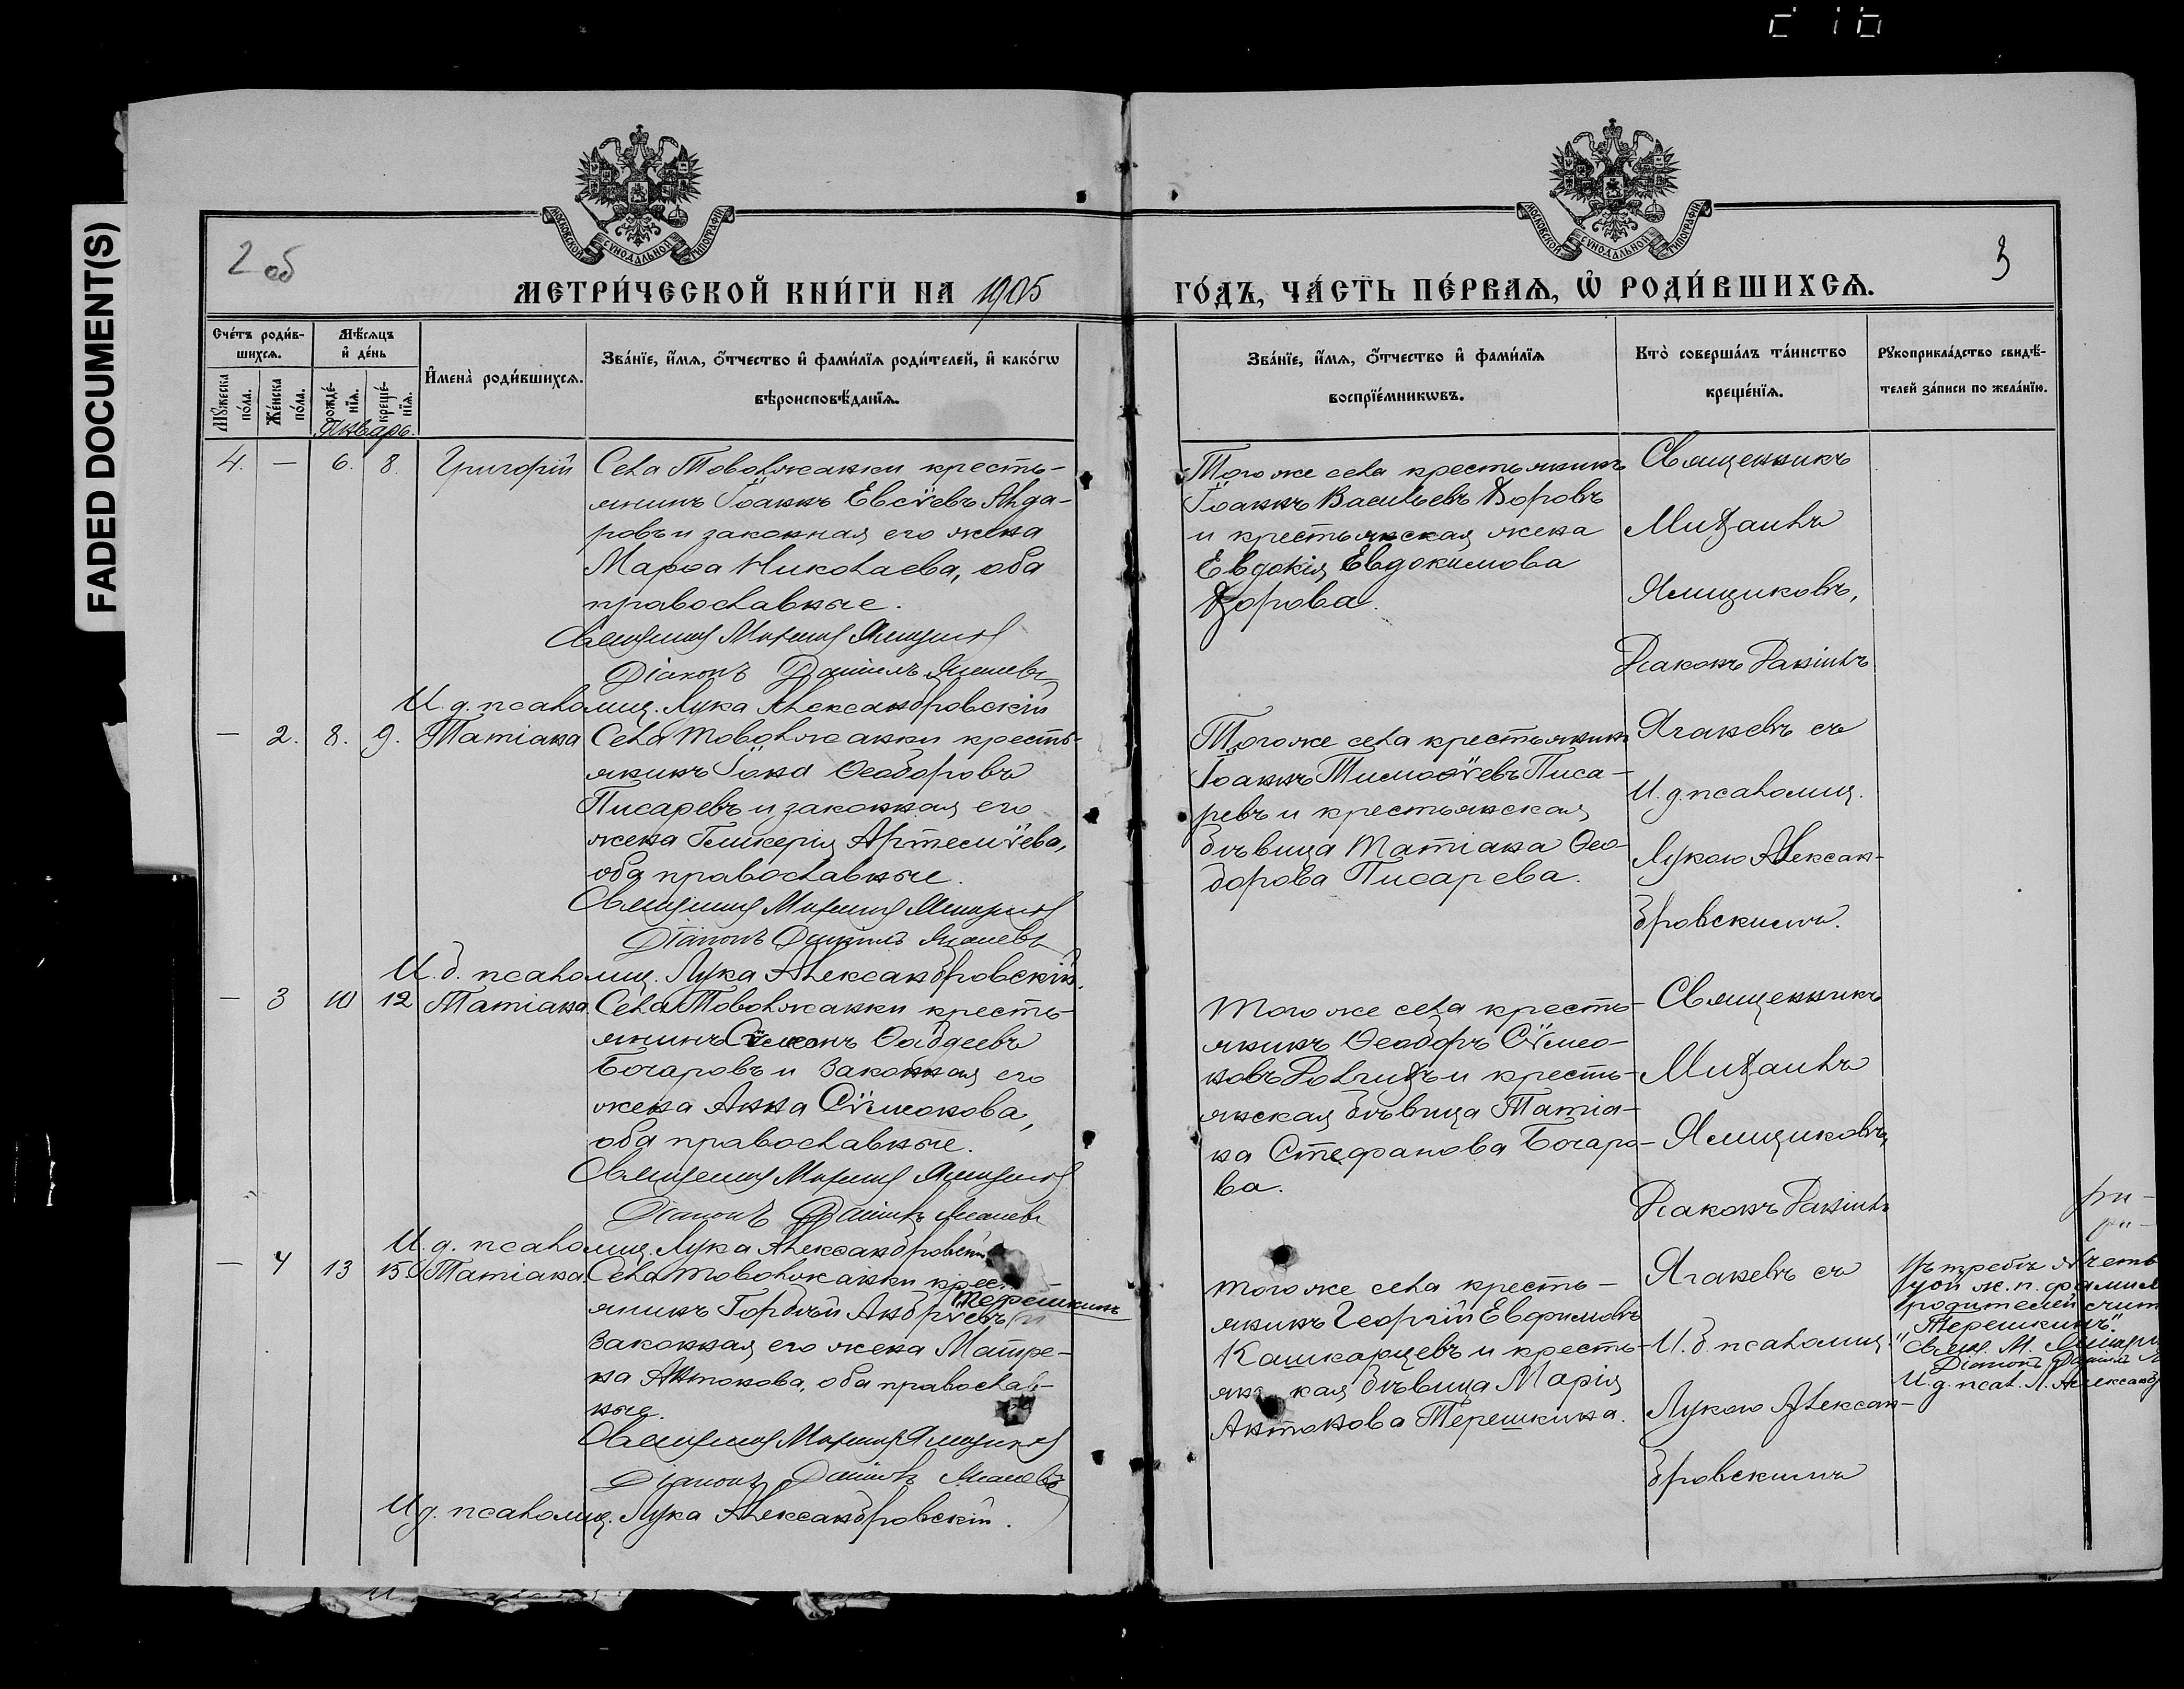 FADED DOCUMENT(S)
МОСКОВСКОЙ СѴНОДАЛЬНОЙ ТИПОГРАФІИ
МОСКОВСКОЙ СѴНОДАЛЬНОЙ ТИПОГРАФІИ
2 об
3
МЕТРИ́ЧЕСКОЙ КНИ́ГИ НА 1905
ГО́ДЪ, ЧА́СТЬ ПЕ́РВАѦ, Ѡ҆ РОДИ́ВШИХСѦ.
Сче́тъ роди́в-
шихсѧ.
Мѣ́сѧцъ
и҆ де́нь
И҆мена̀ роди́вшихсѧ.
Зва́нїе, и҆́мѧ, ѻ҆́тчество и҆ фами́лїѧ роди́телей, и҆ како́гѡ
вѣроисповѣ́данїѧ.
Зва́нїе, и҆́мѧ, ѻ҆́тчество и҆ фами́лїѧ
воспрїе́мникѡвъ.
Кто̀ соверша́лъ та́инство
креще́нїѧ.
Рꙋкоприкла́дство свидѣ́-
телей за́писи по жела́нїю.
Мꙋ́жеска
по́ла.
Же́нска
по́ла.
рожде́-
нїѧ.
креще́-
нїѧ.
Январь.
4. — 6. 8. Григорій
Села Товолжанки кресть-
янинъ Іоаннъ Евсѵевъ Алда-
ровъ и законная его жена
Марѳа Николаева, оба
православные.
Священник Михаил Ямщиков
Діаконъ Даніилъ Яганевъ
И. д. псаломщ. Лука Александровскій
Того же села крестьянинъ
Іоаннъ Васильевъ Зоровъ
и крестьянская жена
Евдокія Евдокимова
Зорова.
Священникъ
Михаилъ
Ямщиковъ,
Діаконъ Даніилъ
Яганевъ съ
И. д. псаломщ.
Лукою Алексан-
дровскимъ.
— 2. 8. 9. Татіана
Села Товолжанки кресть-
янинъ Іона Ѳеодоровъ
Писаревъ и законная его
жена Гликерія Артемѵева,
оба православные.
Священник Михаил Ямщиков
Діаконъ Даніилъ Яганевъ
И. д. псаломщ. Лука Александровскій.
Того же села крестьянинъ
Іоаннъ Тимоѳѵевъ Писа-
ревъ и крестьянская
дѣвица Татіана Ѳео-
дорова Писарева.
— 3 10 12 Татіана
Села Товолжанки кресть-
янинъ Сѵмеонъ Ѳаддеевъ
Бочаровъ и законная его
жена Анна Сѵмонова,
оба православные.
Священник Михаил Ямщиков
Діаконъ Даніилъ Яганевъ
И. д. псаломщ. Лука Александровскій
Того же села кресть-
янинъ Ѳеодоръ Сѵмео-
новъ Долгихъ и кресть-
янская дѣвица Татіа-
на Стефанова Бочаро-
ва.
Священникъ
Михаилъ
Ямщиковъ,
Діаконъ Даніилъ
Яганевъ съ
И. д. псаломщ.
Лукою Алексан-
дровскимъ
— 4 13 15 Татіана
Села Товолжанки крес-
Терешкинъ
янинъ Гордѵй Андрѵевъ и
законная его жена Матре-
на Антонова, оба православ-
ные.
Священник Михаил Ямщиков
Діаконъ Даніилъ Яганевъ
И. д. псаломщ. Лука Александровскій.
Того же села кресть-
янинъ Георгій Евфимовъ
Кашкарцевъ и кресть-
янская дѣвица Марія
Антонова Терешкина.
родителей счит
"Терешкинъ".
Свящ. М. Ямщи
Діаконъ Даніилъ Я
И. д. псал. Л. Александ